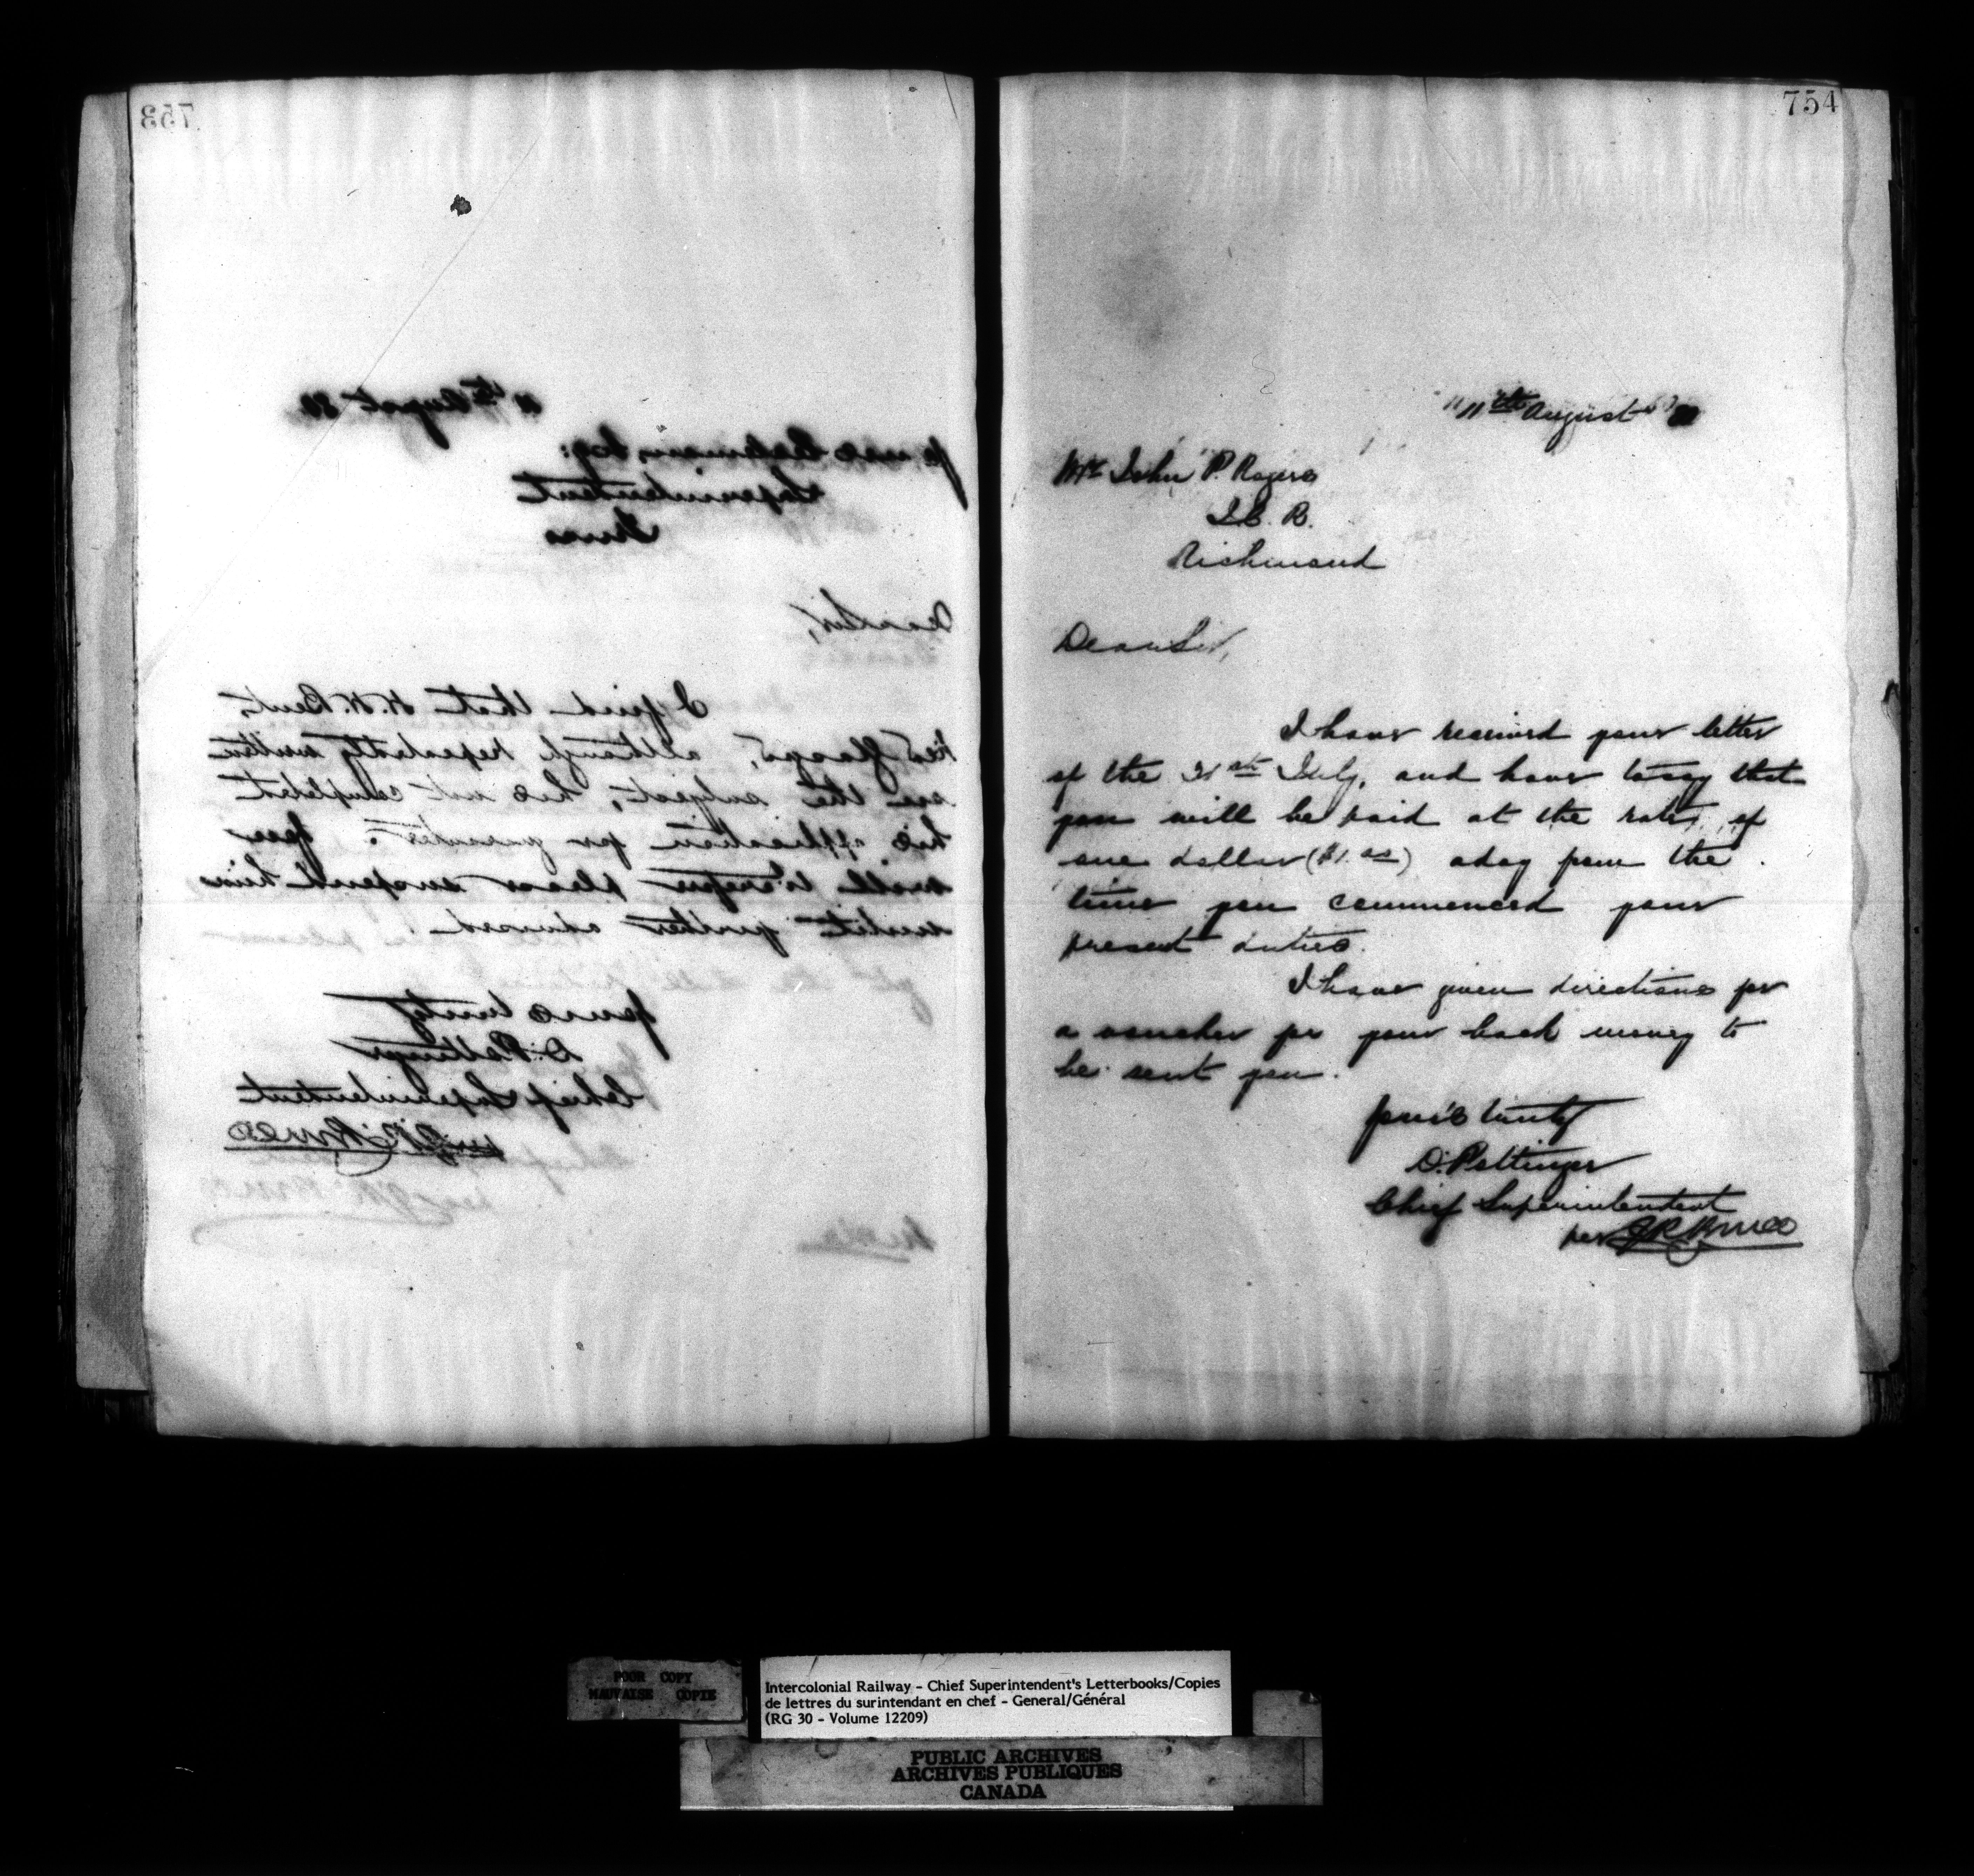 753
11th August 80
James Coleman, Esq:
Superintendent
Truro
Dear Sir,
I find that H. H. Bent,
River Glasgow, although repeatedly written
on the subject, has not completed
his application for guarantee. You
will therefore please suspend him
until further advised.
Yours truly
D. Pottinger
Chief Superintendent
per J R Bruce
754
11th August 80
Mr John P. Rogers
I. C. R.
Richmond
Dear Sir,
I have received your letter
of the 31st July, and have to say that
you will be paid at the rate of
one dollar ($1.00) a day from the
time you commenced your
present duties.
I have given directions for
a voucher for your back money to
be sent you.
Yours truly
D. Pottinger
Chief Superintendent
per J R Bruce
POOR COPY
MAUVAISE COPIE
Intercolonial Railway - Chief Superintendent's Letterbooks/Copies
de lettres du surintendant en chef - General/Général
(RG 30 - Volume 12209)
PUBLIC ARCHIVES
ARCHIVES PUBLIQUES
CANADA